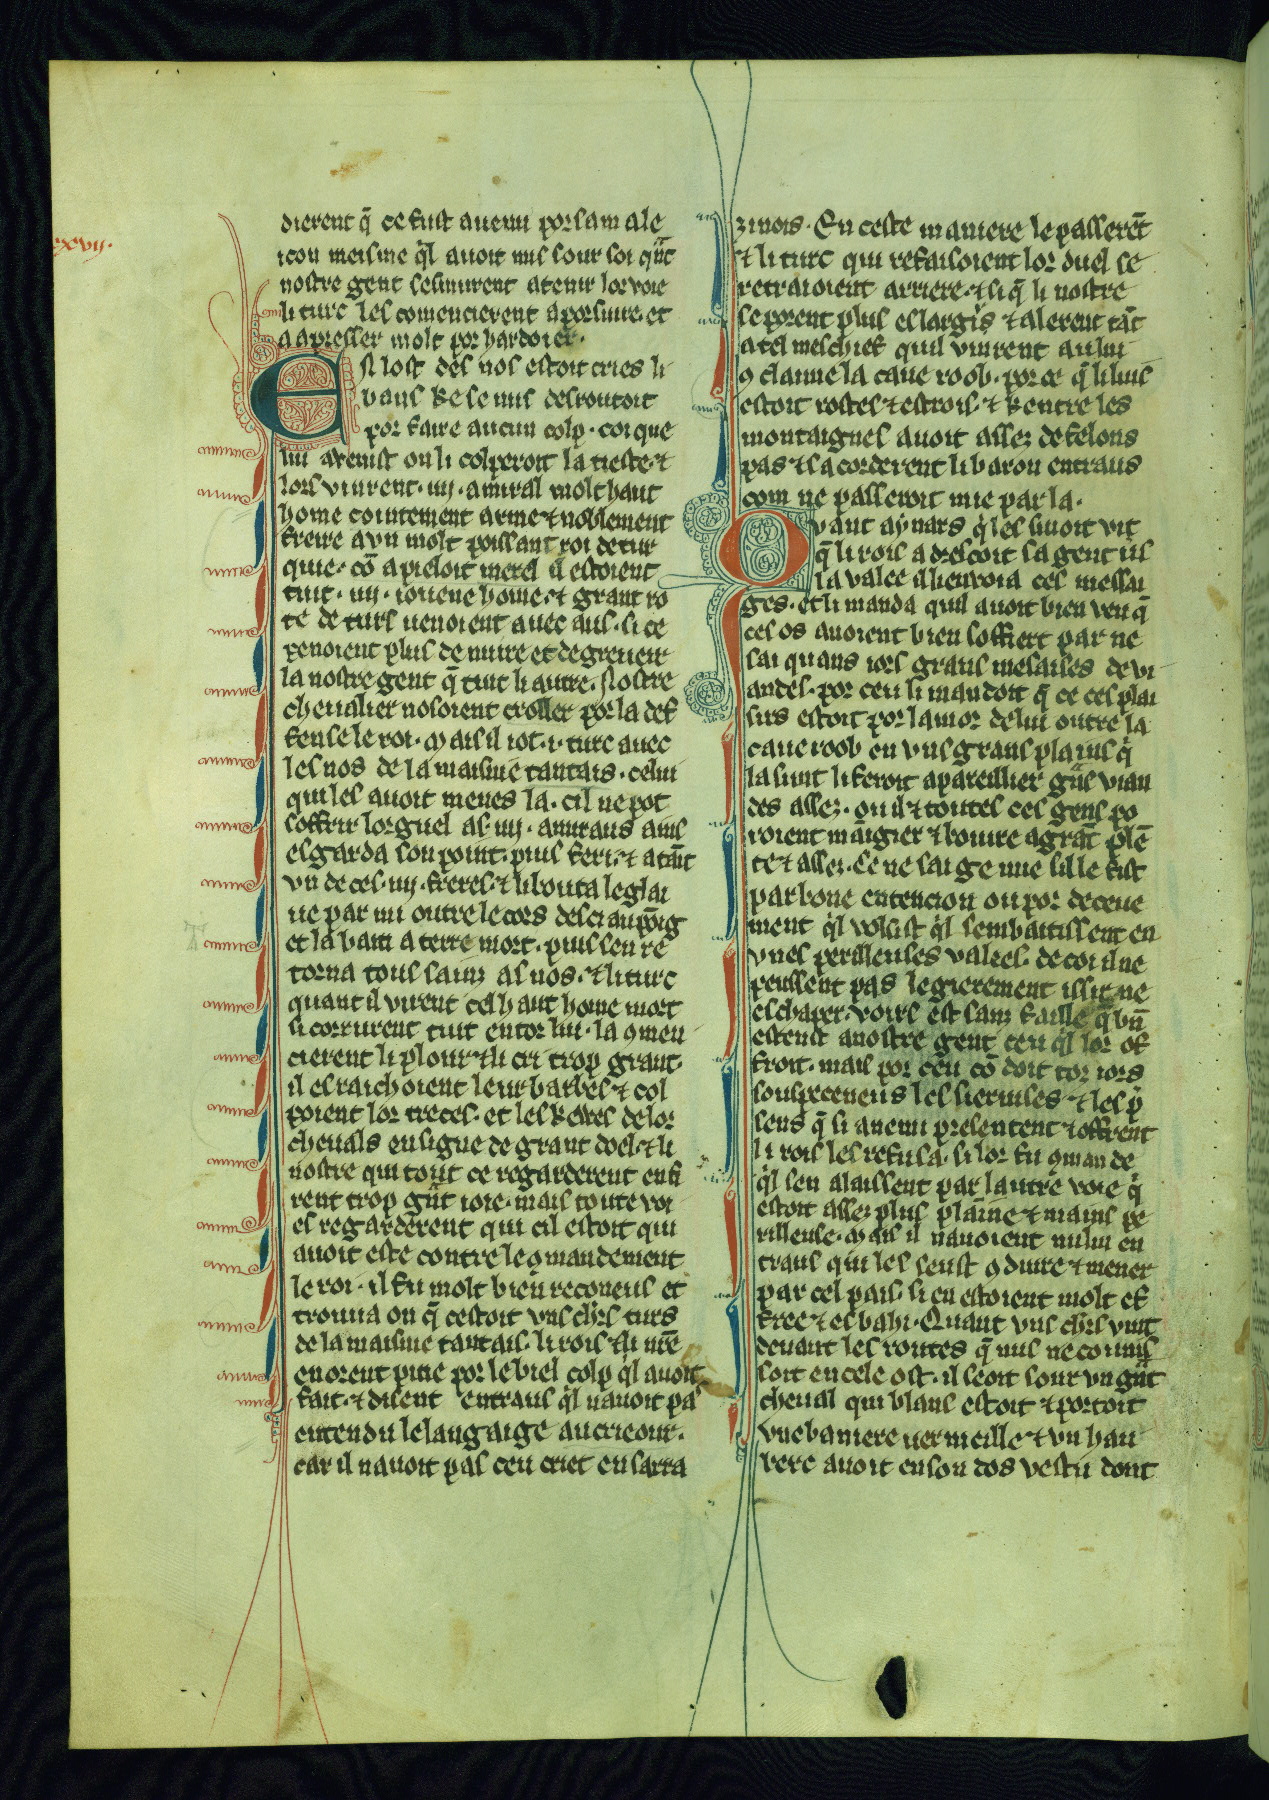 xxvij.
dierent q̄ ce fust auenu por sam ale
icon meisme q̓l auoit mis sour soi q̓nt
nostre gent se simrent a tenir lor voie
li turc les comencierent a porsiure. et
a apresser molt por hardoier.
EN lost des nos estoit cries li
bans ke se nus desroutoit
por faire aucun colp. coi que
lui auenist on li colperoit la tieste. ⁊
lors vinrent. iiij. amiral molt haut
home cointement arme ⁊ noblement
freire a vn molt poissant roi de tur
quie. cō apieloit merel il estoient
tuit. iiij. iouene home. ⁊ grant ro
te de turs uenoient auec aus. si ce
penoient plus de nuire et de greuer
la nostre gent q̄ tuit li autre. Nostre
cheualier nosoient croller por la def
fense le roi. Mais il iot. i. turc auec
les nos de la maisnie tantais. celui
qui les auoit menes la. cil ne pot
soffrir lorguel as. iiij. amiraus ains
esgarda son point. puis feri. ⁊ ataīt
vn de ces. iiij. freres. ⁊ li bouta le glai
ue par mi outre le cors desci au poig
et la bati a terre mort. puis sen re
torna tous sains as nos. ⁊ li turc
quant il virent cel haut home mort
si corrurent tuit entor lui. la 9men
cierent li plour ⁊ li cri trop grant.
il esraichoient leur barbes ⁊ col
poient lor treces. et les kewes de lor
cheuals en signe de grant doel. ⁊ li
nostre qui tout ce regarderent enfi
rent trop gūt ioie. mais toute voi
es regarderent qui cil estoit qui
auoit este contre le 9mandement
le roi. il fu molt bien reconeus et
trouua on q̄ cestoit vns chr̄s turs
de la maisnie tantais. li rois ⁊ li nr̄e
en orent pitie por le biel colp q̓l auoit
fait. ⁊ disent entraus q̓l nauoit pas
entendu le langaige au crieour.
car il nauoit pas ceu criet en sarra
zinois. En ceste maniere le passerēt
⁊ li turc qui refaisoient lor duel se
retraioient arriere. ⁊ si q̄ li nostre
se porent plus eslargir ⁊ alerent tāt
a tel meschief quil vinrent au lui
9 claime la caue roob. por ce q̄ li lius
estoit rostes ⁊ estrois. ⁊ kentre les
montaignes auoit assez de felons
pas ⁊ sacorderent li baron entraus
com ne passeroit mie par la.
Quant aynars q̓ les siuoit vit
q̄ li rois adrescoit sa gent vs
la valee il lienvoia ces messai
ges. et li manda quil auoit bien veu q̄
ces os auoient bien soffiert par ne
sai quans iors grans mesaises de vi
andes. por ceu li mandoit q̄ ce ces plai
sirs estoit por lamor de lui outre la
caue roob en vns grans plains q̓
la sunt li feroit apareillier gñs vian
des assez. ou il ⁊ toutes ces gens po
roient māgier ⁊ boiure a grāt plē
te ⁊ assez. Ce ne sai ge mie sille fist
par bone entencion ou por deceue
ment q̓l volsist q̓l sembatissent en
vnes perilleuses valees. de coi il ne
peussent pas legierement issir ne
eschaper. voirs est sanz faille q̄ bū
estenst a nostre gent ceu q̓l lor of
froit. mais por ceu cō doit tor iors
souspeceneus les siernises ⁊ les p̄
sens q̄ si anemi presentent ⁊ offrent
li rois les refusa. si lor fu 9mande
q̓l sen alaissent par lautre voie q̓
estoit assez plus plaine ⁊ mains pe
rilleuse. Mais il nauoient nului en
traus qui les seust 9duire ⁊ mener
par cel pais. si en estoient molt ef
free ⁊ esbahi. Quant vns chr̄s vint
deuant les routes q̄ nus ne conuis
soit en cele ost. il seoit sour vn gūt
cheual qui blans estoit ⁊ portoit
vne baniere uermeille ⁊ vn hau
berc auoit en son dos vestu dont